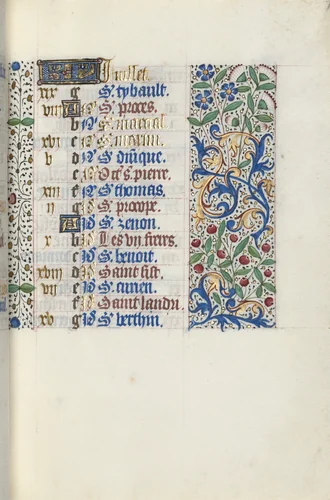 Juillet
xix g S. tybault.
viii A S. proces.
b S. marcial
xvi c S. martin.
v d S. dinique
e Oct. s. pierre.
xiii f S. thomas.
ii g S. procope.
A S. zenon.
x b Les vii freres.
c S. benoit.
xviii d Saint
vii e S.
f Saint landri.
xv g S. berthin.